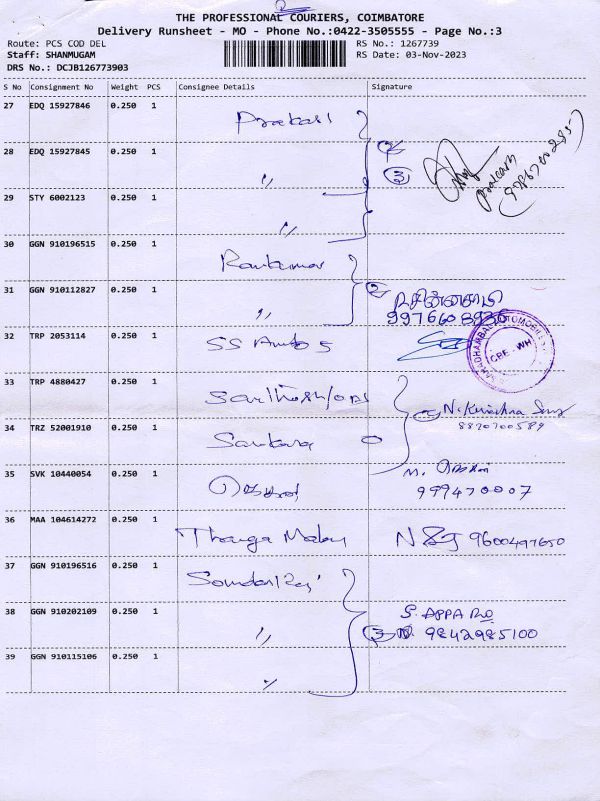 THE PROFESSIONAL COURIERS, COIMBATORE
Delivery Runsheet - MO - Phone No.:0422-3505555 - Page No.:3
Route: PCS COD DEL
RS No.: 1267739
Staff: SHANMUGAM
RS Date: 03-Nov-2023
DRS No.: DCJB126773903
S No Consignment No Weight PCS Consignee Details Signature
27 EDQ 15927846 0.250 1 Prakash
28 EDQ 15927845 0.250 1 "
3
29 STY 6002123 0.250 1 "
30 GGN 910196515 0.250 1 Ramkumar
31 GGN 910112827 0.250 1 " 2
9976608936
32 TRP 2053114 0.250 1 SS Autos
CBE - WH
33 TRP 4880427 0.250 1
8870700589
34 TRZ 52001910 0.250 1 Sankara
35 SVK 10440054 0.250 1
36 MAA 104614272 0.250 1 Thanga N 9600497650
37 GGN 910196516 0.250 1
38 GGN 910202109 0.250 1 " S. APPA
3 9842985100
39 GGN 910115106 0.250 1 "